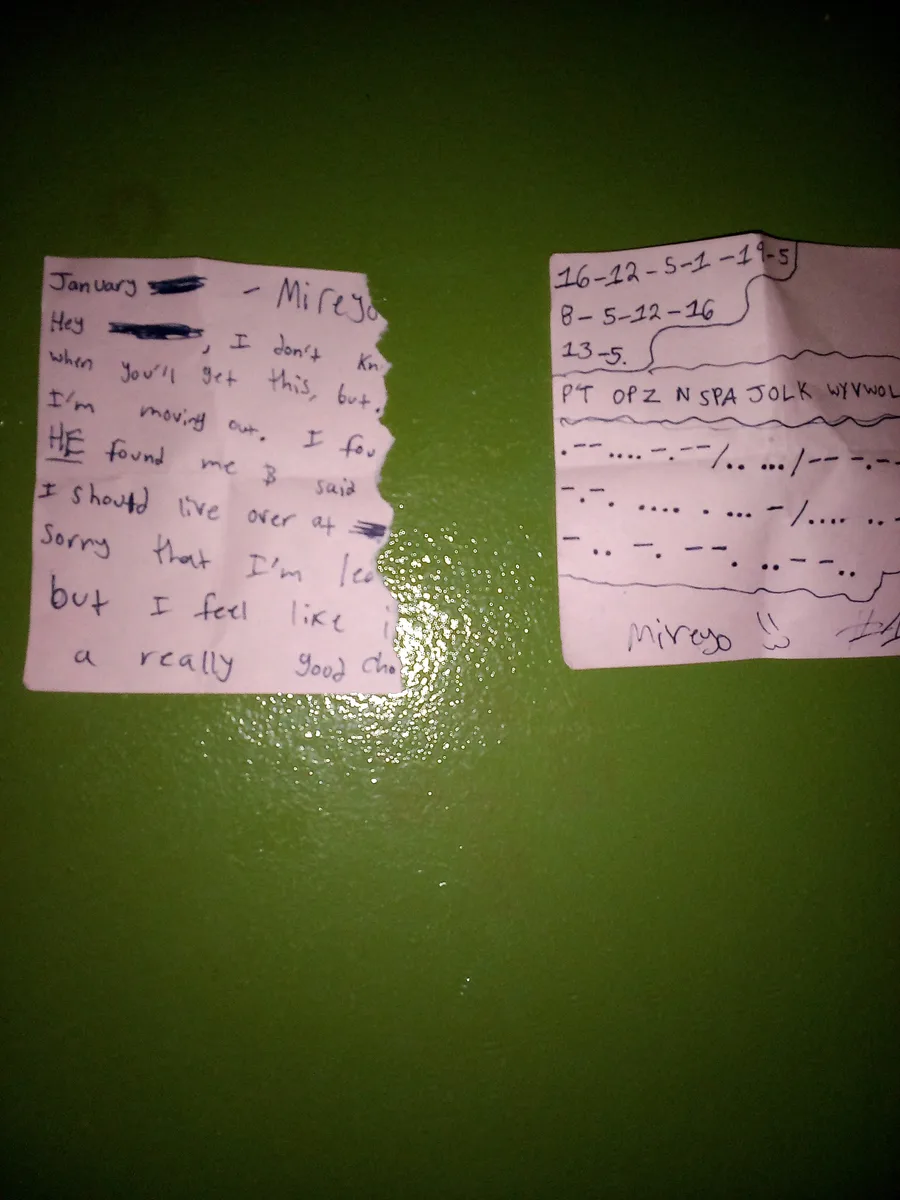 January - Mireyo
Hey , I don't Kn
when you'll get this, but.
I'm moving out. I fou
HE found me & said
I should live over at
Sorry that I'm lea
but I feel like i
a really good cho
16-12-5-1-19-5
8-5-12-16
13-5.
PT OPZ NSPA JOLK WYVWOL
.-- .... -.-- / .. ... / -- -.-
-.-. .... . ... - / .... ..-
-.. -. --. ..--..
Mireyo